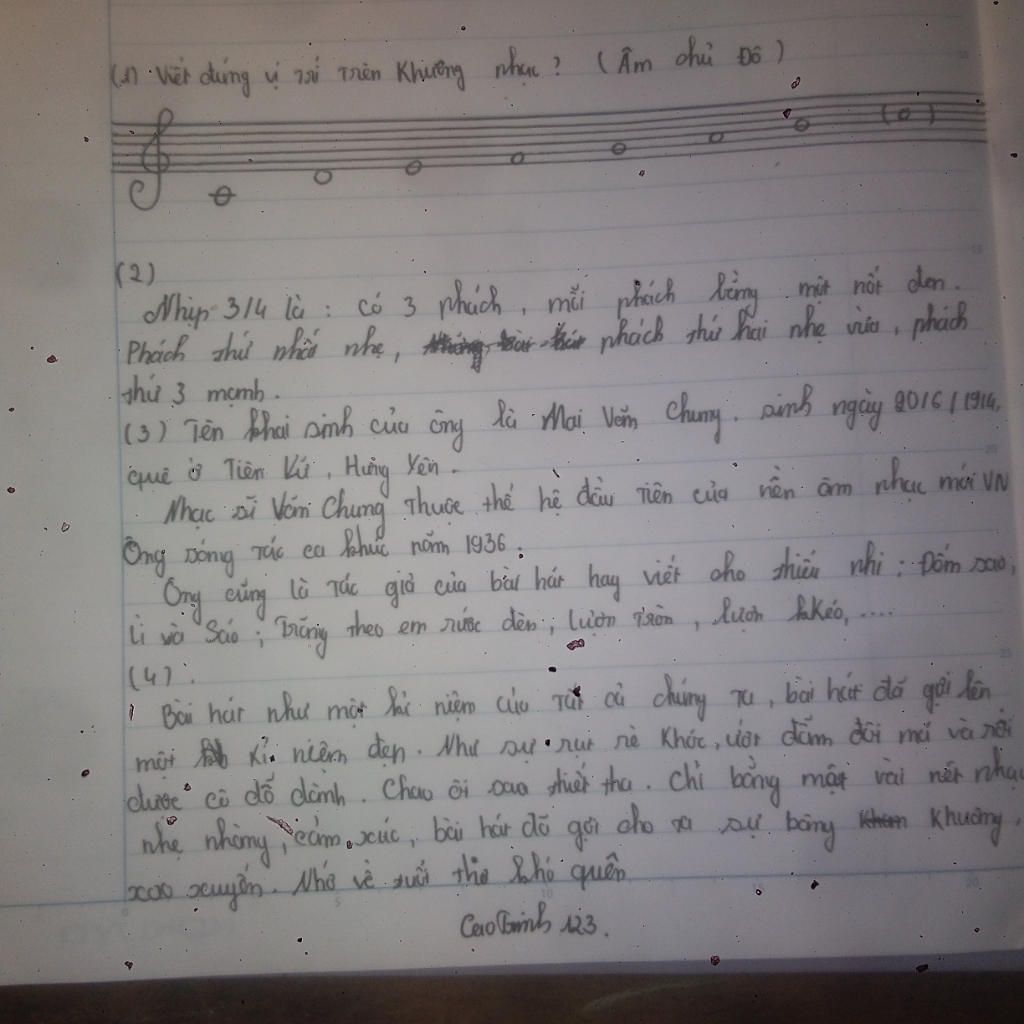 (1) Viết đúng vị trí trên Khuông nhạc? (Âm chủ Đô)
(2)
Nhịp 3/4 là: có 3 phách, mỗi phách bằng một nốt đen.
Phách thứ nhất nhẹ, phách thứ hai nhẹ vừa, phách
thứ 3 mạnh.
(3) Tên khai sinh của ông là Mai Văn Chung. sinh ngày 20/6/1914,
quê ở Tiên Lữ, Hưng Yên.
Nhạc sĩ Văn Chung thuộc thế hệ đầu tiên của nền âm nhạc mới VN
Ông sáng tác ca khúc năm 1936.
Ông cũng là tác giả của bài hát hay viết cho thiếu nhi: Đếm sao,
Lì và Sáo; Trăng theo em rước đèn; lượn tròn, lượn khéo,....
(4):
Bài hát như một kỉ niệm của tất cả chúng ta, bài hát đã gợi lên
một kỉ niệm đẹp. Như sự rụt rè khóc, ướt đẫm đôi mi và rồi
được cô dỗ dành. Chao ôi sao thiết tha. Chỉ bằng một vài nét nhạc
nhẹ nhàng, cảm xúc, bài hát đã gợi cho ta sự bâng Khuâng,
xao xuyến. Nhớ về tuổi thơ khó quên
CaoTrinh 123.